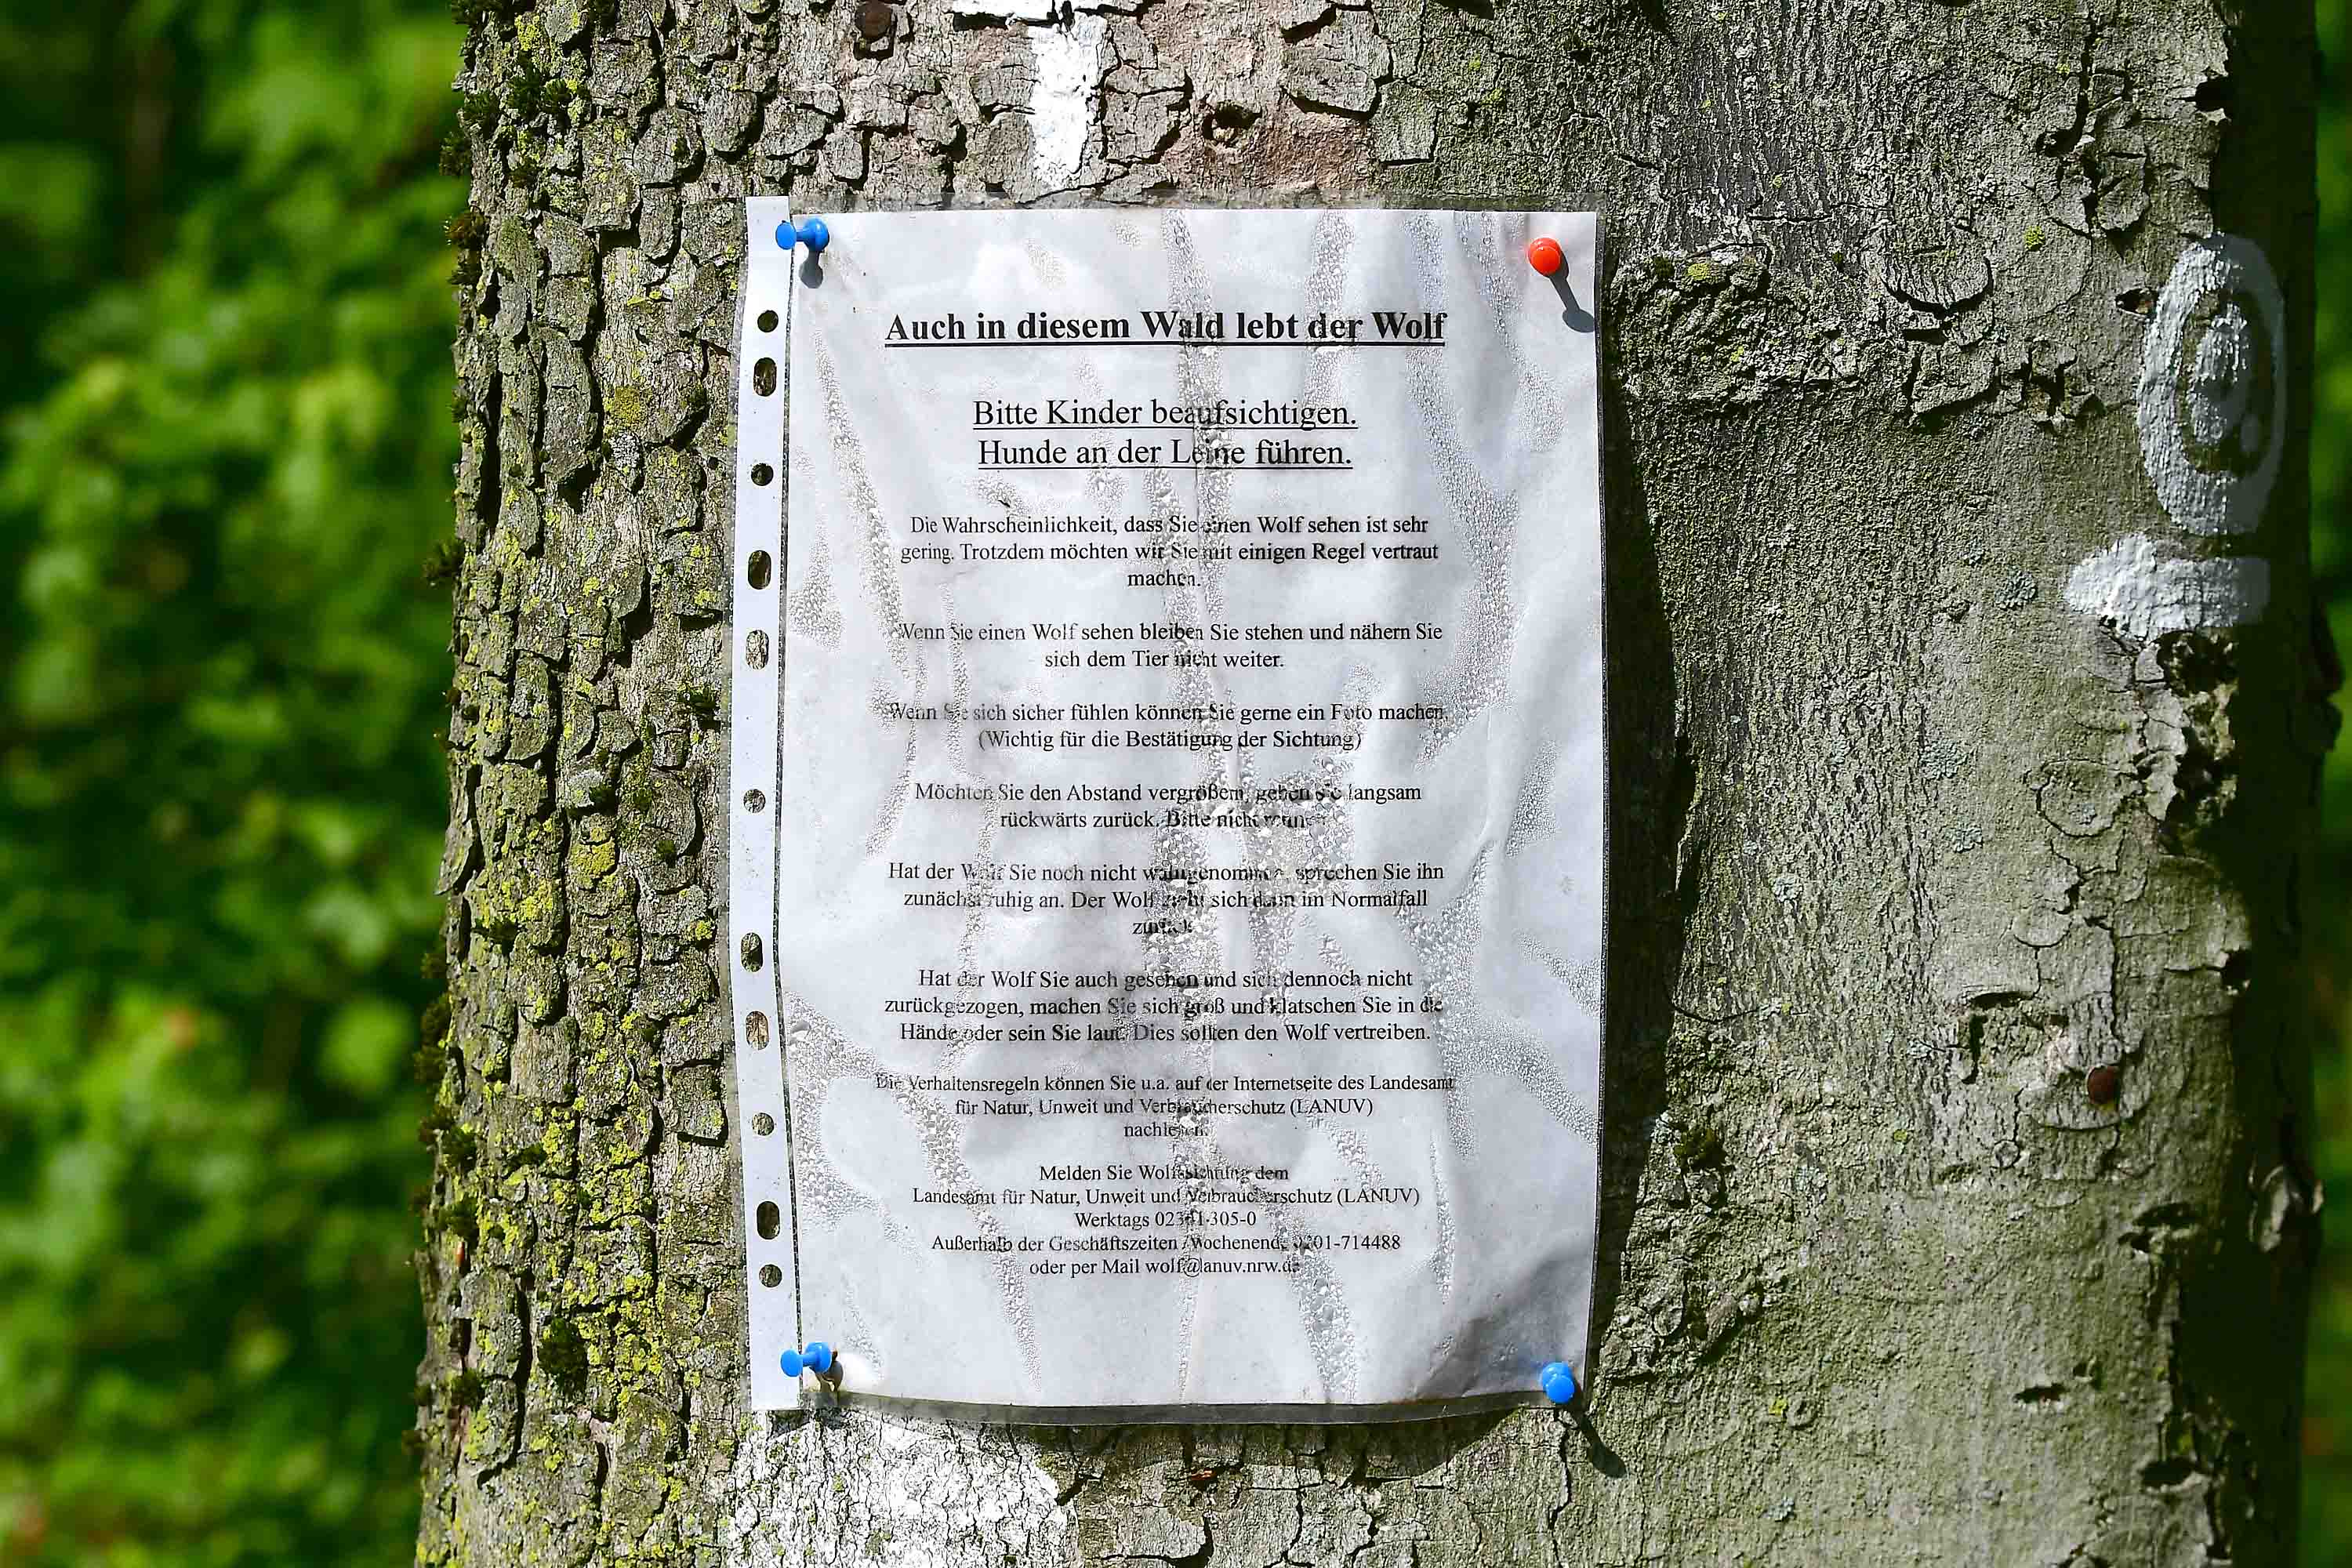 Auch in diesem Wald lebt der Wolf
Bitte Kinder beaufsichtigen.
Hunde an der Leine führen.
Die Wahrscheinlichkeit, dass Sie einen Wolf sehen ist sehr
gering. Trotzdem möchten wir Sie mit einigen Regel vertraut
machen.
Wenn Sie einen Wolf sehen bleiben Sie stehen und nähern Sie
sich dem Tier nicht weiter.
Wenn Sie sich sicher fühlen können Sie gerne ein Foto machen.
(Wichtig für die Bestätigung der Sichtung)
Möchten Sie den Abstand vergrößern, gehen Sie langsam
rückwärts zurück. Bitte nicht
Hat der Wolf Sie noch nicht wahrgenommen, sprechen Sie ihn
zunächst ruhig an. Der Wolf zieht sich dann im Normalfall
zurück.
Hat der Wolf Sie auch gesehen und sich dennoch nicht
zurückgezogen, machen Sie sich groß und klatschen Sie in die
Hände oder sein Sie laut. Dies sollten den Wolf vertreiben.
Die Verhaltensregeln können Sie u.a. auf der Internetseite des Landesamt
für Natur, Unweit und Verbraucherschutz (LANUV)
nachlesen.
Melden Sie Wolfssichtung dem
Landesamt für Natur, Unweit und Verbraucherschutz (LANUV)
Werktags 02361-305-0
Außerhalb der Geschäftszeiten /Wochenende 0201-714488
oder per Mail wolf@lanuv.nrw.de